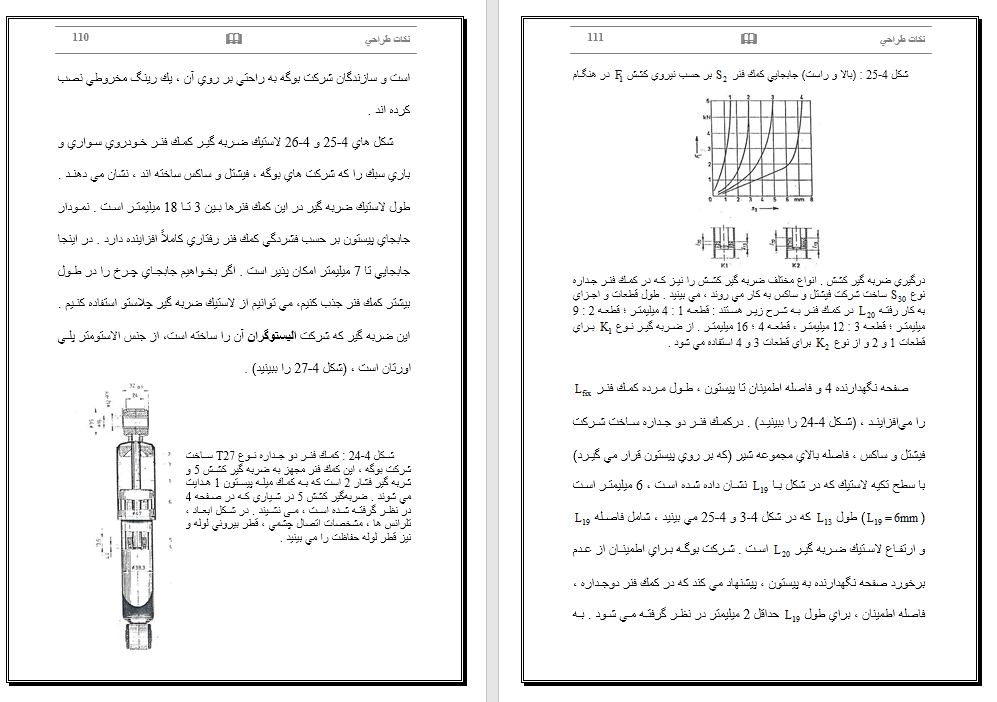 110
نكات طراحي
است و سازندگان شركت بوگه به راحتي بر روي آن ، يك رينگ مخروطي نصب
كرده اند .
شكل هاي 4-25 و 4-26 لاستيك ضربه گير كمك فنر خودروي سواري و
باري سبك را كه شركت هاي بوگه ، فيشتل و ساكس ساخته اند ، نشان مي دهند .
طول لاستيك ضربه گير در اين كمك فنرها بين 3 تا 18 ميليمتر است . نمودار
جابجاي پيستون بر حسب فشردگي كمك فنر رفتاري كاملاً افزاينده دارد . در اينجا
جابجايي تا 7 ميليمتر امكان پذير است . اگر بخواهيم جابجاي چرخ را در طول
بيشتر كمك فنر جذب كنيم، مي توانيم از لاستيك ضربه گير چلاستو استفاده كنيم .
اين ضربه گير كه شركت اليستوگران آن را ساخته است، از جنس الاستومتر پلي
اورتان است ، (شكل 4-27 را ببينيد) .
شكل 4-24 : كمك فنر دو جداره نوع T27 ساخت
شركت بوگه ، اين كمك فنر مجهز به ضربه گير كشش 5 و
ضربه گير فشار 2 است كه به كمك ميله پيستون 1 هدايت
مي شوند . ضربه‌گير كشش 5 در شياري كه در صفحه 4
در نظر گرفته شده است ، مي نشيند . در شكل ابعاد ،
تلرانس ها ، مشخصات اتصال چشمي ، قطر بيروني لوله و
نيز قطر لوله حفاظت را مي بينيد .
111
نكات طراحي
شكل 4-25 : (بالا و راست) جابجايي كمك فنر S2 بر حسب نيروي كشش F1 در هنگام
1 2 3 4
5
kN
4
3
2
1
0 1 2 3 4 5 6 mm 8
K1
K2
درگيري ضربه گير كشش . انواع مختلف ضربه گير كشش را نيز كه در كمك فنر جداره
نوع S30 ساخت شركت فيشتل و ساكس به كار مي روند ، مي بينيد . طول قطعات و اجزاي
به كار رفته L20 در كمك فنر به شرح زير هستند : قطعه 1 : 4 ميليمتر ؛ قطعه 2 : 9
ميليمتر ؛ قطعه 3 : 12 ميليمتر ، قطعه 4 ؛ 16 ميليمتر . از ضربه گير نوع K1 براي
قطعات 1 و 2 و از نوع K2 براي قطعات 3 و 4 استفاده مي شود .
صفحه نگهدارنده 4 و فاصله اطمينان تا پيستون ، طول مرده كمك فنر Lfix
را مي‌افزايند ، (شكل 4-24 را ببينيد) . دركمك فنر دو جداره ساخت شركت
فيشتل و ساكس ، فاصله بالاي مجموعه شير (كه بر روي پيستون قرار مي گيرد)
با سطح تكيه لاستيك كه در شكل با L19 نشان داده شده است ، 6 ميليمتر است
(L19 = 6mm) طول L13 كه در شكل 4-3 و 4-25 مي بينيد ، شامل فاصله L19
و ارتفاع لاستيك ضربه گير L20 است . شركت بوگه براي اطمينان از عدم
برخورد صفحه نگهدارنده به پيستون ، پيشنهاد مي كند كه در كمك فنر دوجداره ،
فاصله اطمينان ، براي طول L19 حداقل 2 ميليمتر در نظر گرفته مي شود . به